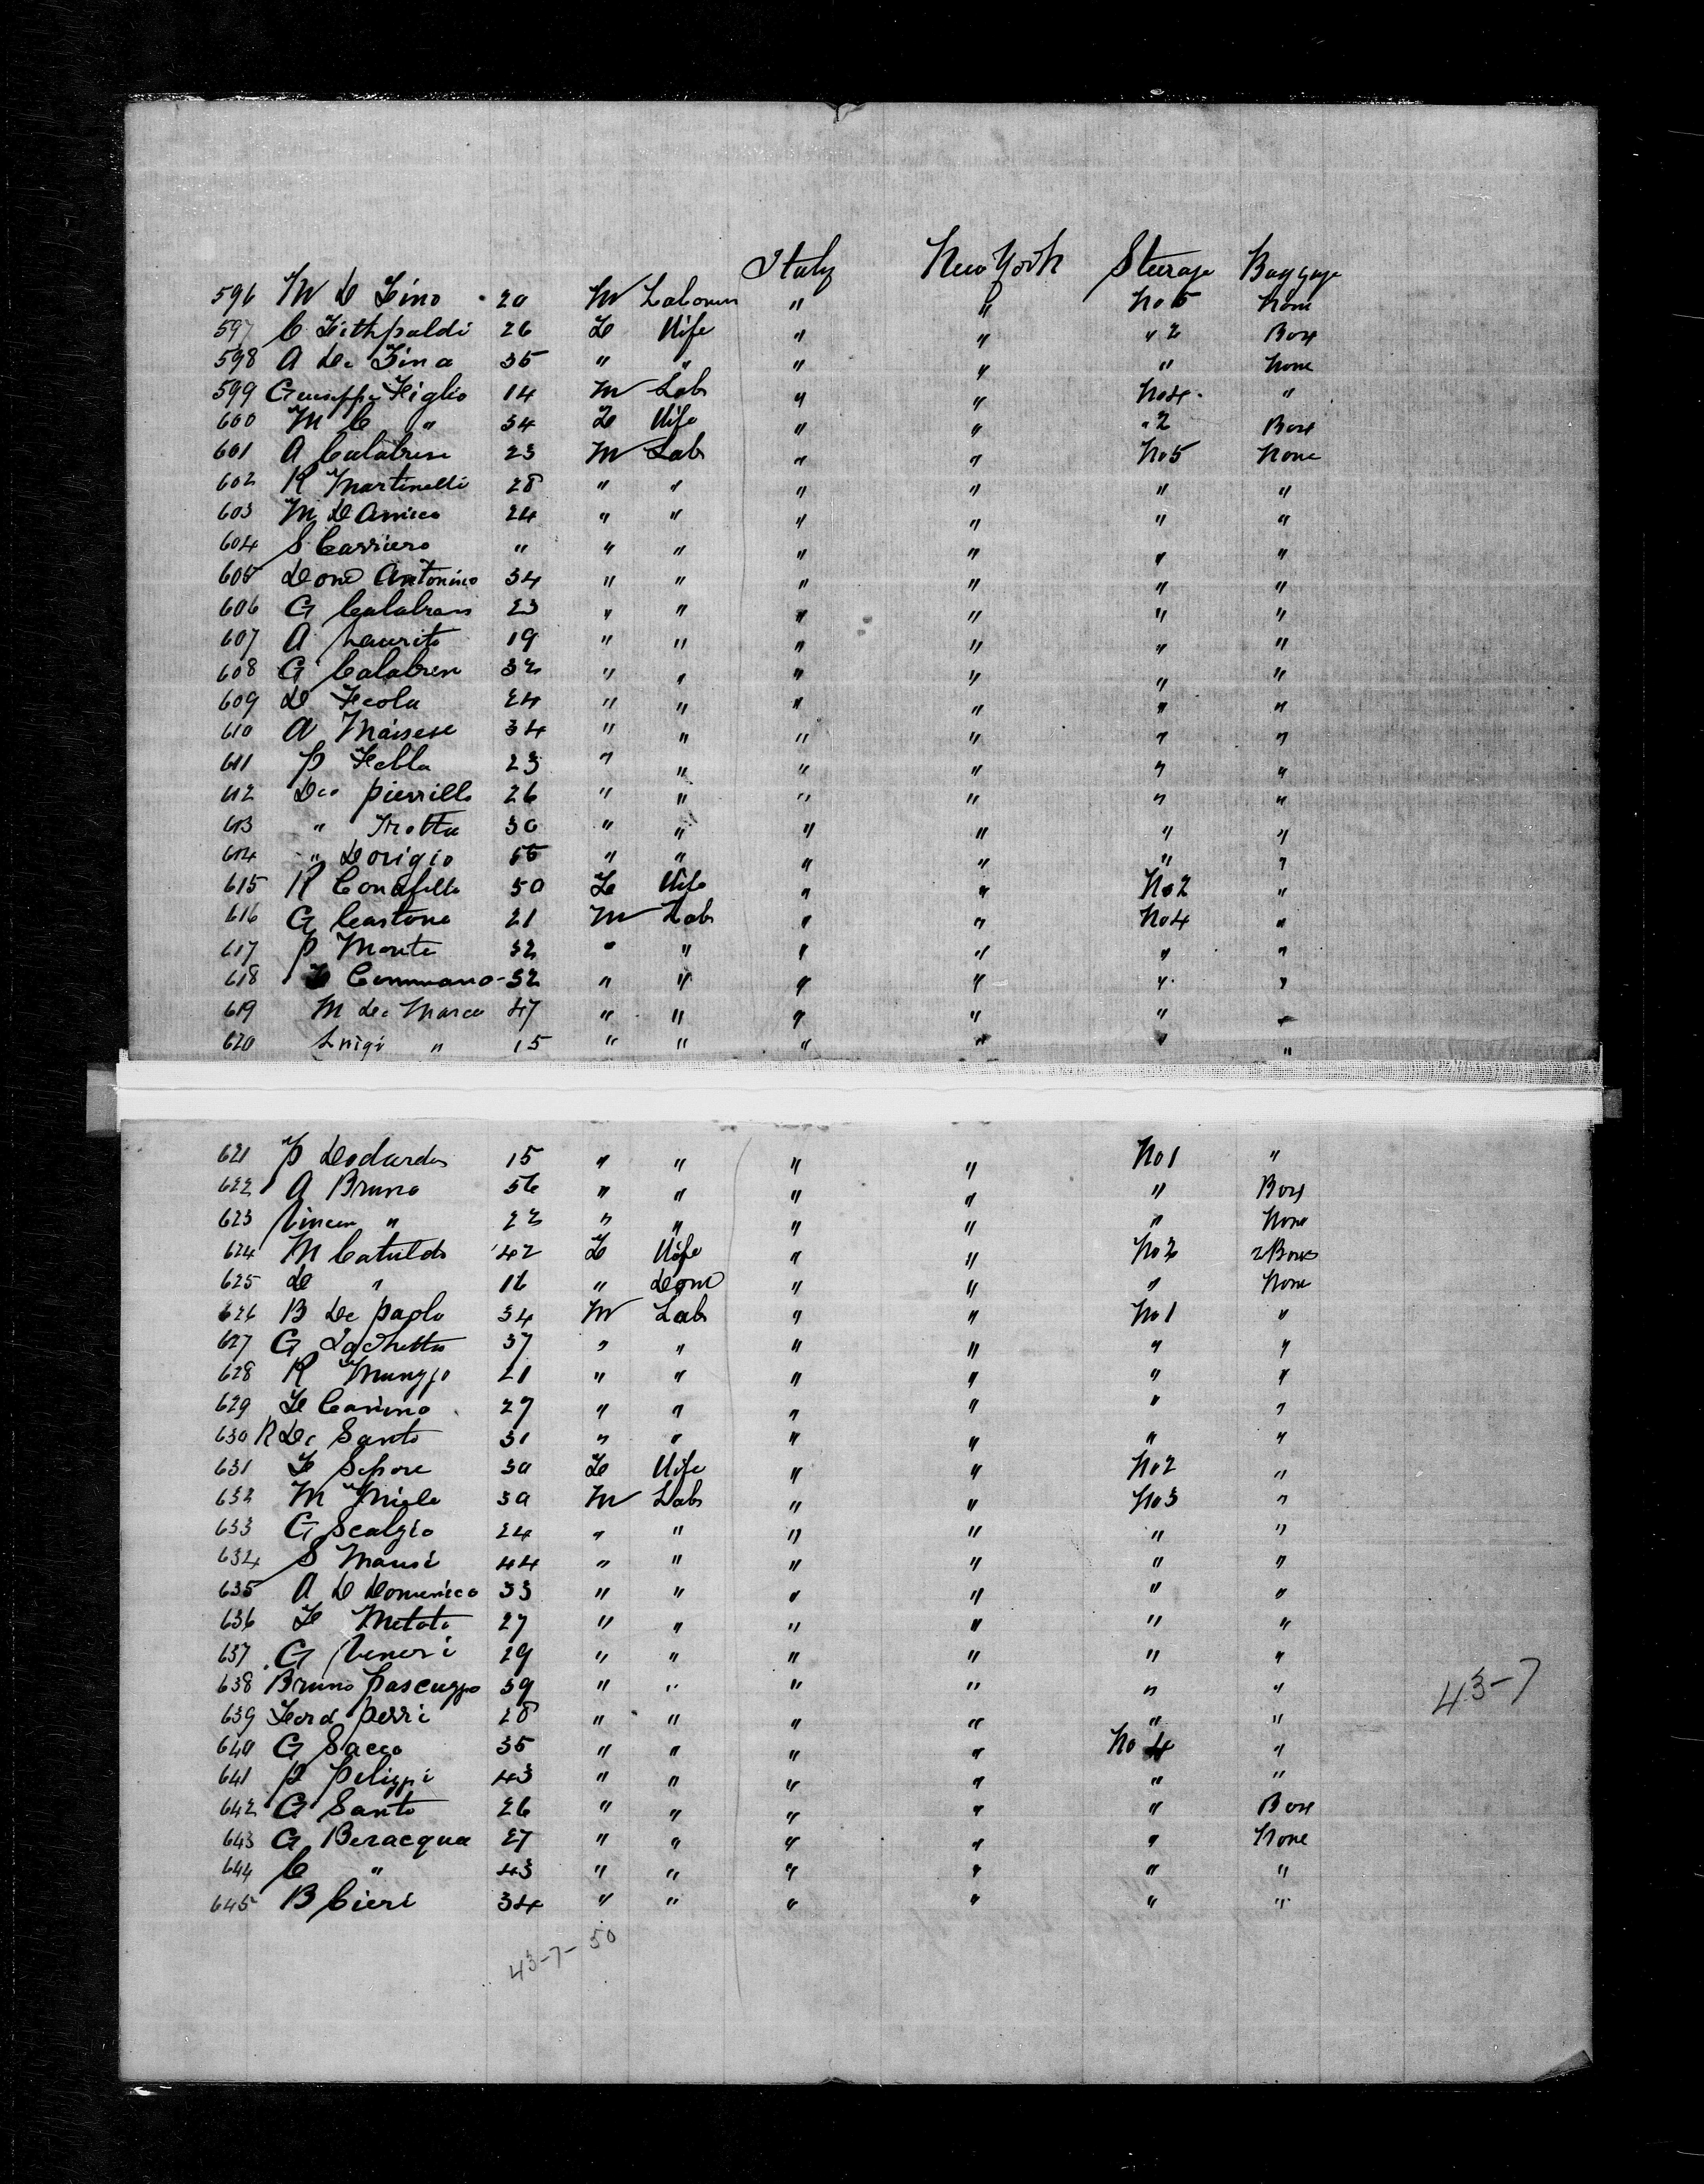 Italy New York Steerage Baggage
596 M D Fino 20 M Labourer " " No 5 None
597 C Fithpaldi 26 Fe Wife " " " 2 Box
598 A De Fina 35 " " " " " None
599 Giuseppe Figlio 14 M Lab " " No 4 "
600 M C " 34 Fe Wife " " " 2 Box
601 A Calabrese 23 M Lab " " No 5 None
602 R Martinelli 28 " " " " " "
603 M D Amico 24 " " " " " "
604 S Carriero " " " " " " "
605 Dono Antonino 34 " " " " " "
606 G Calabrese 23 " " " " " "
607 A Laurito 19 " " " " " "
608 G Calabrese 32 " " " " " "
609 D Fecola 24 " " " " " "
610 A Maisese 34 " " " " " "
611 P Fella 23 " " " " " "
612 Do Pierrillo 26 " " " " " "
613 " Trotta 30 " " " " " "
614 " Dorigio 55 " " " " " "
615 R 50 Fe Wife " " No 2 "
616 G Castone 21 M Lab " " No 4 "
617 P Monte 32 " " " " " "
618 32 " " " " " "
619 M De Marco 47 " " " " " "
620 Luigi " 15 " " " " " "
621 P Dodardo 15 " " " " No 1 "
622 A Bruno 56 " " " " " Box
623 Vincen " 22 " " " " " None
624 M Cataldo 42 Fe Wife " " No 2 2 Boxes
625 D " 16 " Dom " " " None
626 B De Paolo 34 M Lab " " No 1 "
627 G 37 " " " " " "
628 R Mungjo 21 " " " " " "
629 Fe Carino 27 " " " " " "
630 R De Santo 31 " " " " " "
631 F Sepore 30 Fe Wife " " No 2 "
632 M Miele 30 M Lab " " No 3 "
633 G Scalzio 24 " " " " " "
634 S Mansi 44 " " " " " "
635 A D Domenico 33 " " " " " "
636 Fe Metoto 27 " " " " " "
637 G Veneri 29 " " " " " "
638 Bruno Pascuzzo 39 " " " " " "
43-7
639 Ferd Perri 28 " " " " " "
640 G Sacco 35 " " " " No 4 "
641 P Pelizzi 43 " " " " " "
642 G Santo 26 " " " " " Box
643 G Beracqua 27 " " " " " None
644 C " 43 " " " " " "
645 B Cieri 34 " " " " " "
43-7-50